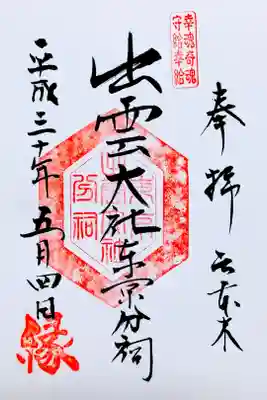 奉拝 六本木
幸魂奇魂
守給幸給
出雲大社東京分祠
平成三十年五月四日
縁